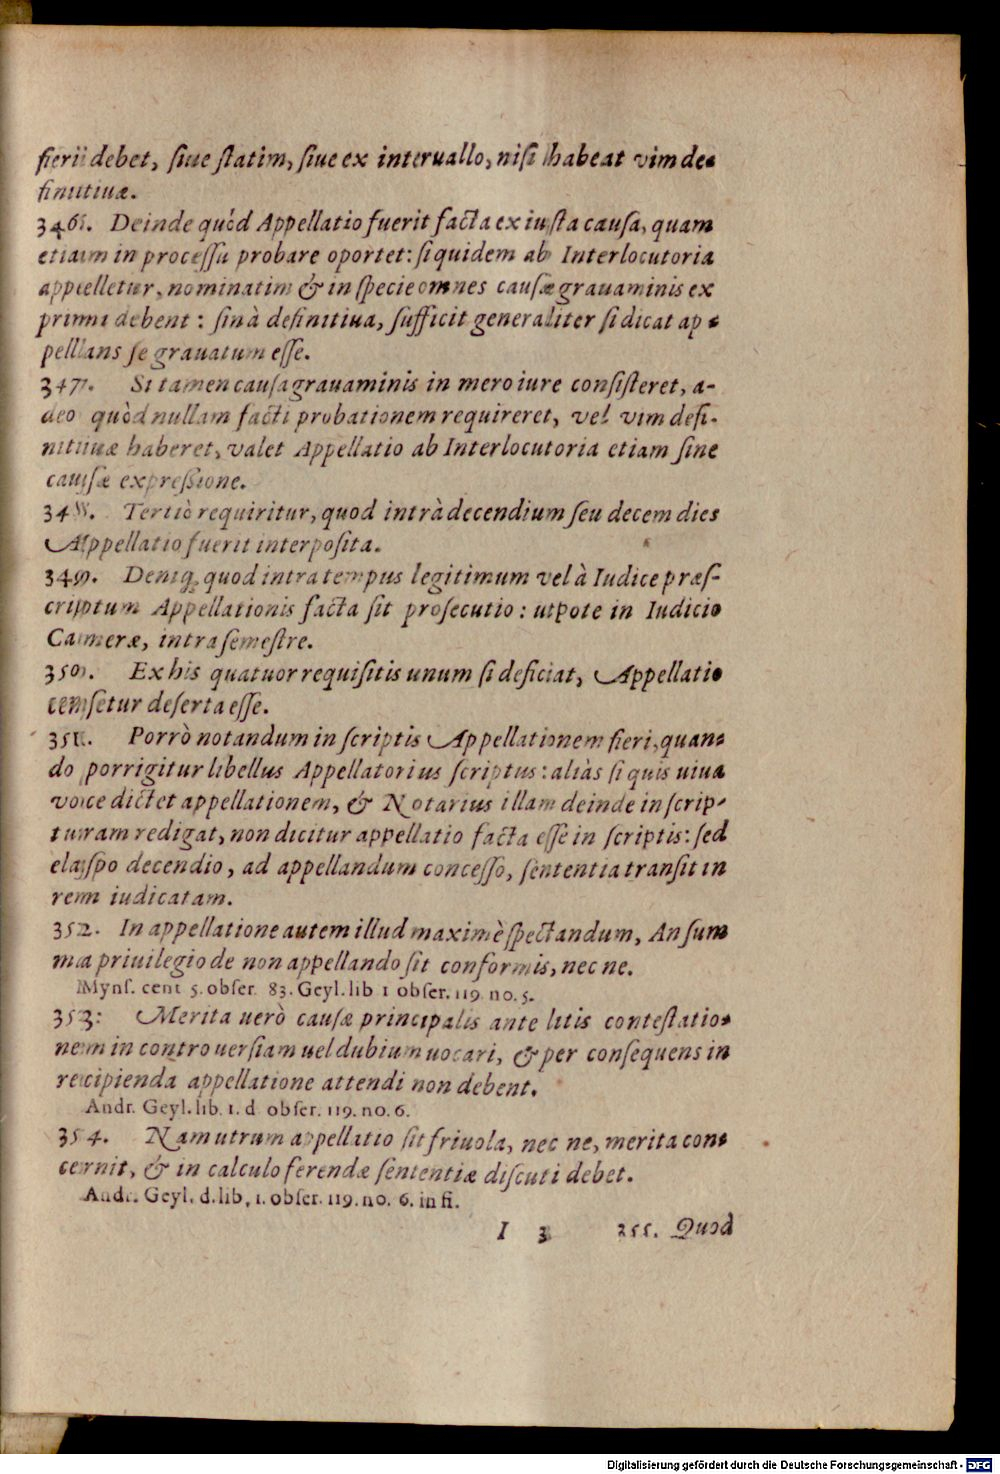 fieri debet, siue statim, siue ex interuallo, nisi habeat vim de-
finitiuæ.
346. Deinde quòd Appellatio fuerit facta ex iusta causa, quam
etiam in processu probare oportet: si quidem ab Interlocutoria
appelletur, nominatim & in specie omnes causæ grauaminis ex
primi debent: sin à definitiua, sufficit generaliter si dicat ap-
pellans se grauatum esse.
347. Si tamen causa grauaminis in mero iure consisteret, a-
deo quòd nullam facti probationem requireret, vel vim defi-
nitiuæ haberet, valet Appellatio ab Interlocutoria etiam sine
causæ expressione.
348. Tertiò requiritur, quod intrà decendium seu decem dies
Appellatio fuerit interposita.
349. Deniq; quod intra tempus legitimum vel à Iudice præs-
criptum Appellationis facta sit prosecutio: utpote in Iudicio
Cameræ, intra semestre.
350. Ex his quatuor requisitis unum si deficiat, Appellatio
censetur deserta esse.
351. Porrò notandum in scriptis Appellationem fieri, quan-
do porrigitur libellus Appellatorius scriptus: aliàs si quis uiua
voce dictet appellationem, & Notarius illam deinde in scrip-
turam redigat, non dicitur appellatio facta esse in scriptis: sed
elapso decendio, ad appellandum concesso, sententia transit in
rem iudicatam.
352. In appellatione autem illud maximè spectandum, An sum
ma priuilegio de non appellando sit conformis, nec ne.
Myns. cent 5. obser. 83. Geyl. lib 1 obser. 119. no. 5.
353: Merita uerò causæ principalis ante litis contestatio-
nem in controuersiam uel dubium uocari, & per consequens in
recipienda appellatione attendi non debent.
Andr. Geyl. lib. 1. d obser. 119. no. 6.
354. Nam utrum appellatio sit friuola, nec ne, merita con-
cernit, & in calculo ferendæ sententiæ discuti debet.
Andr. Geyl. d. lib, 1. obser. 119. no. 6. in fi.
I 3 355. Quod
Digitalisierung gefördert durch die Deutsche Forschungsgemeinschaft - DFG